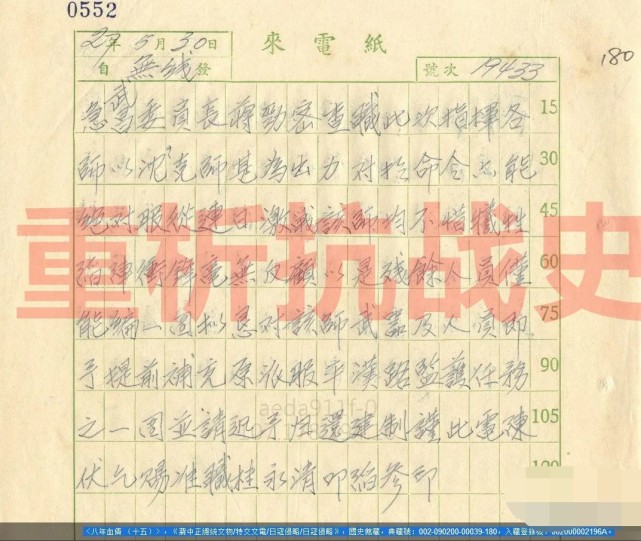 0552
27年5月30日
來電紙
180
自無线發
號次 19433
急武昌委員長蔣勛密查職此次指揮各 15
師以沈克師甚為出力對於命令亦能 30
絕對服從連日激戰該師均不惜犧牲 45
陷陣衝鋒義無反顧以是殘餘人員僅 60
能編一团拟恳对該師武器及人員即 75
予提前補充原派服平漢路監護任務 90
之一团並請迅予归還建制謹此電陳 105
伏乞賜准職桂永清叩陷參印
重析抗战史
aeda911f-0
〈八年血債（十五）〉，《蔣中正總統文物/特交文電/日寇侵略/日寇侵略》，國史館藏，典藏號：002-090200-00039-180，入藏登錄號：002000002196A，